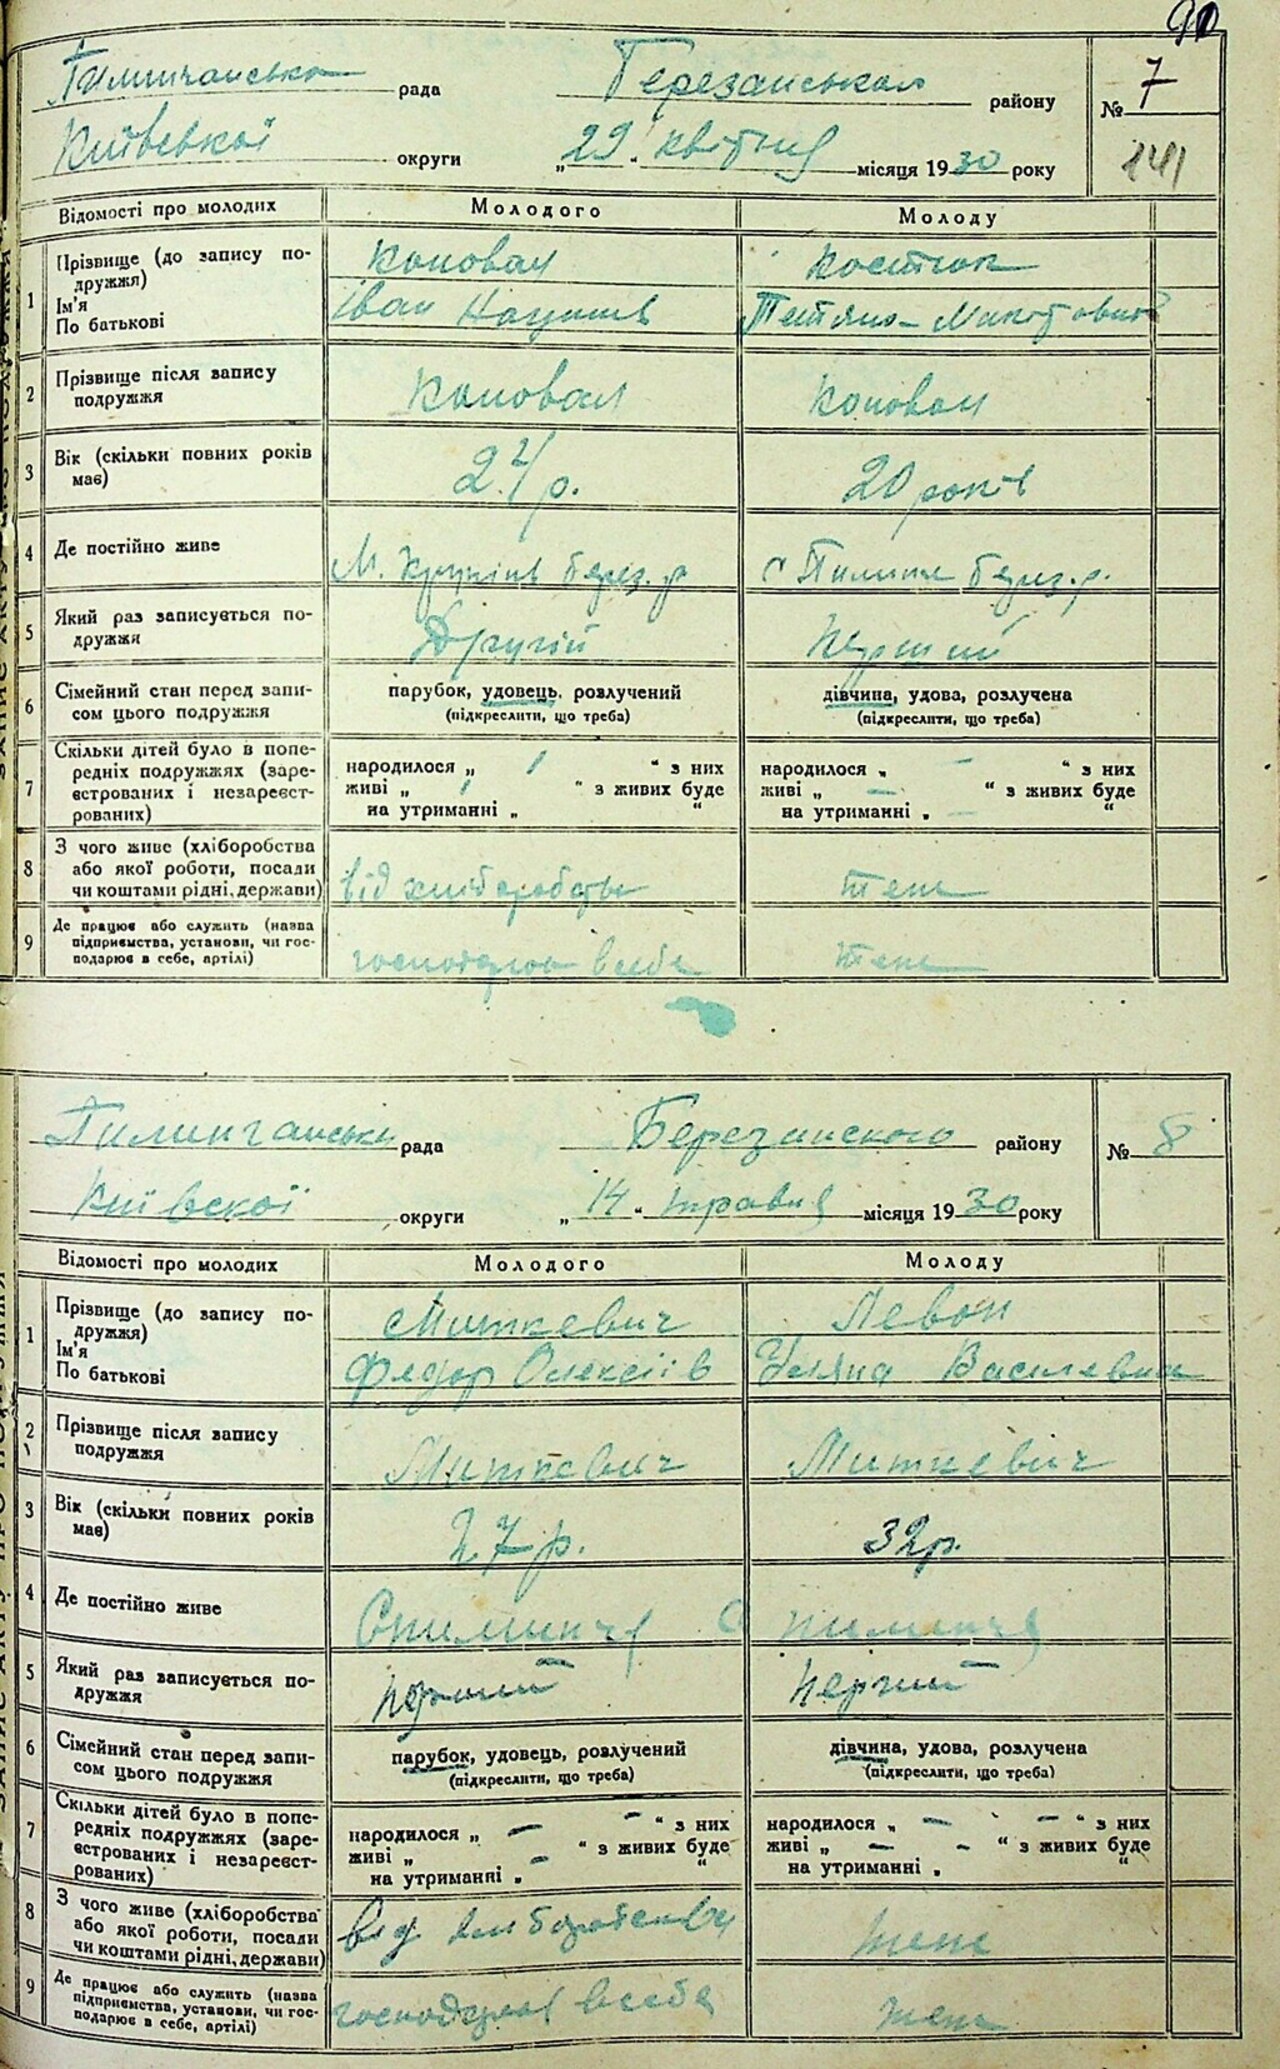 90
Пилипчанська рада Березанського району № 7
Київської округи „29" квітня місяця 1930 року 141
Відомості про молодих Молодого Молоду
1 Прізвище (до запису по- Коновал Костюк
дружжя)
Ім'я Іван Наумів Тетяна Микитовна
По батькові
2 Прізвище після запису Коновал Коновал
подружжя
3 Вік (скільки повних років 24 р. 20 років
має)
4 Де постійно живе М. Березр. с Пилипче Берез. р.
5 Який раз записується по- Другий Перший
дружжя
6 Сімейний стан перед запи- парубок, удовець, розлучений дівчина, удова, розлучена
сом цього подружжя (підкреслити, що треба) (підкреслити, що треба)
7 Скільки дітей було в попе- народилося „ / " з них народилося „ — " з них
редніх подружжях (заре- живі „ / " з живих буде живі „ — " з живих буде
єстрованих і незареєст- на утриманні „ " на утриманні „ — "
рованих)
8 З чого живе (хліборобства
або якої роботи, посади від хліборобства теж
чи коштами рідні, держави)
9 Де працює або служить (назва
підприємства, установи, чи гос- господарює в себе теж
подарює в себе, артілі)
Пилипчанська рада Березанского району № 8
Київскої округи „14" травня місяця 1930 року
Відомості про молодих Молодого Молоду
1 Прізвище (до запису по- Миткевич Левон
дружжя)
Ім'я Федор Олексіїв Уляна Василевна
По батькові
2 Прізвище після запису Миткевич Миткевич
подружжя
3 Вік (скільки повних років 27 р. 32 р.
має)
4 Де постійно живе С пилипча С пилипча
5 Який раз записується по- перший перший
дружжя
6 Сімейний стан перед запи- парубок, удовець, розлучений дівчина, удова, розлучена
сом цього подружжя (підкреслити, що треба) (підкреслити, що треба)
7 Скільки дітей було в попе- народилося „ — — " з них народилося „ — — " з них
редніх подружжях (заре- живі „ — " з живих буде живі „ — - " з живих буде
єстрованих і незареєст- на утриманні „ " на утриманні „ "
рованих)
8 З чого живе (хліборобства
або якої роботи, посади від теж
чи коштами рідні, держави)
9 Де працює або служить (назва
підприємства, установи, чи гос- господарює в себе теж
подарює в себе, артілі)